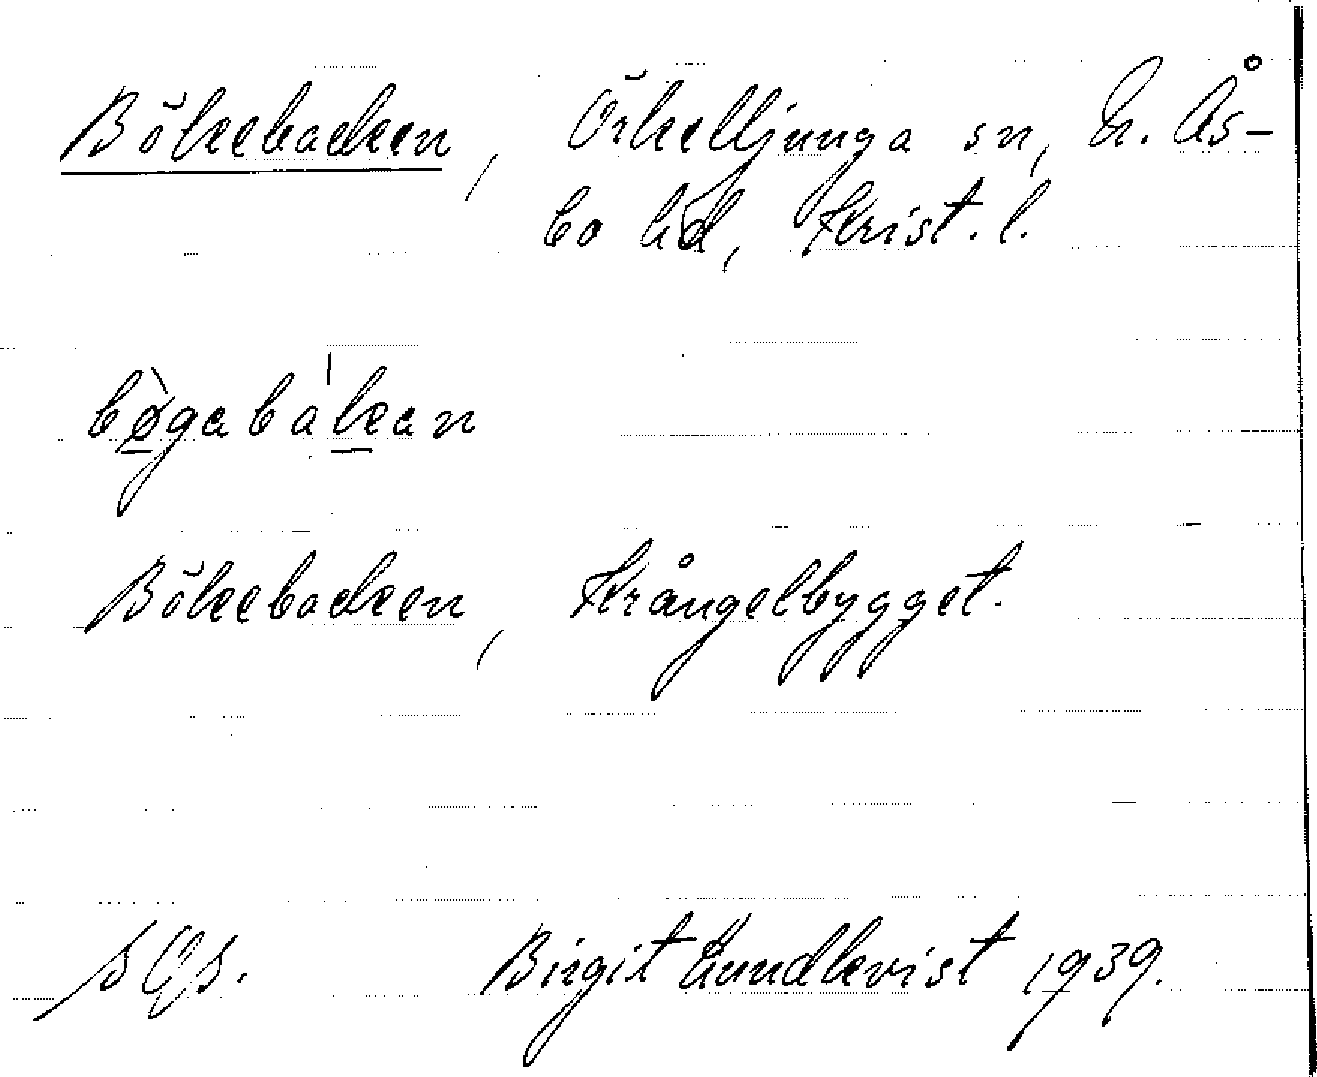 Bökebacken, Örkelljunga sn, N. Ås-
bo hd, Krist. l.
bø̀gabàkan
Bökebacken, Krångelbygget.
Birgit Lundkvist 1939.